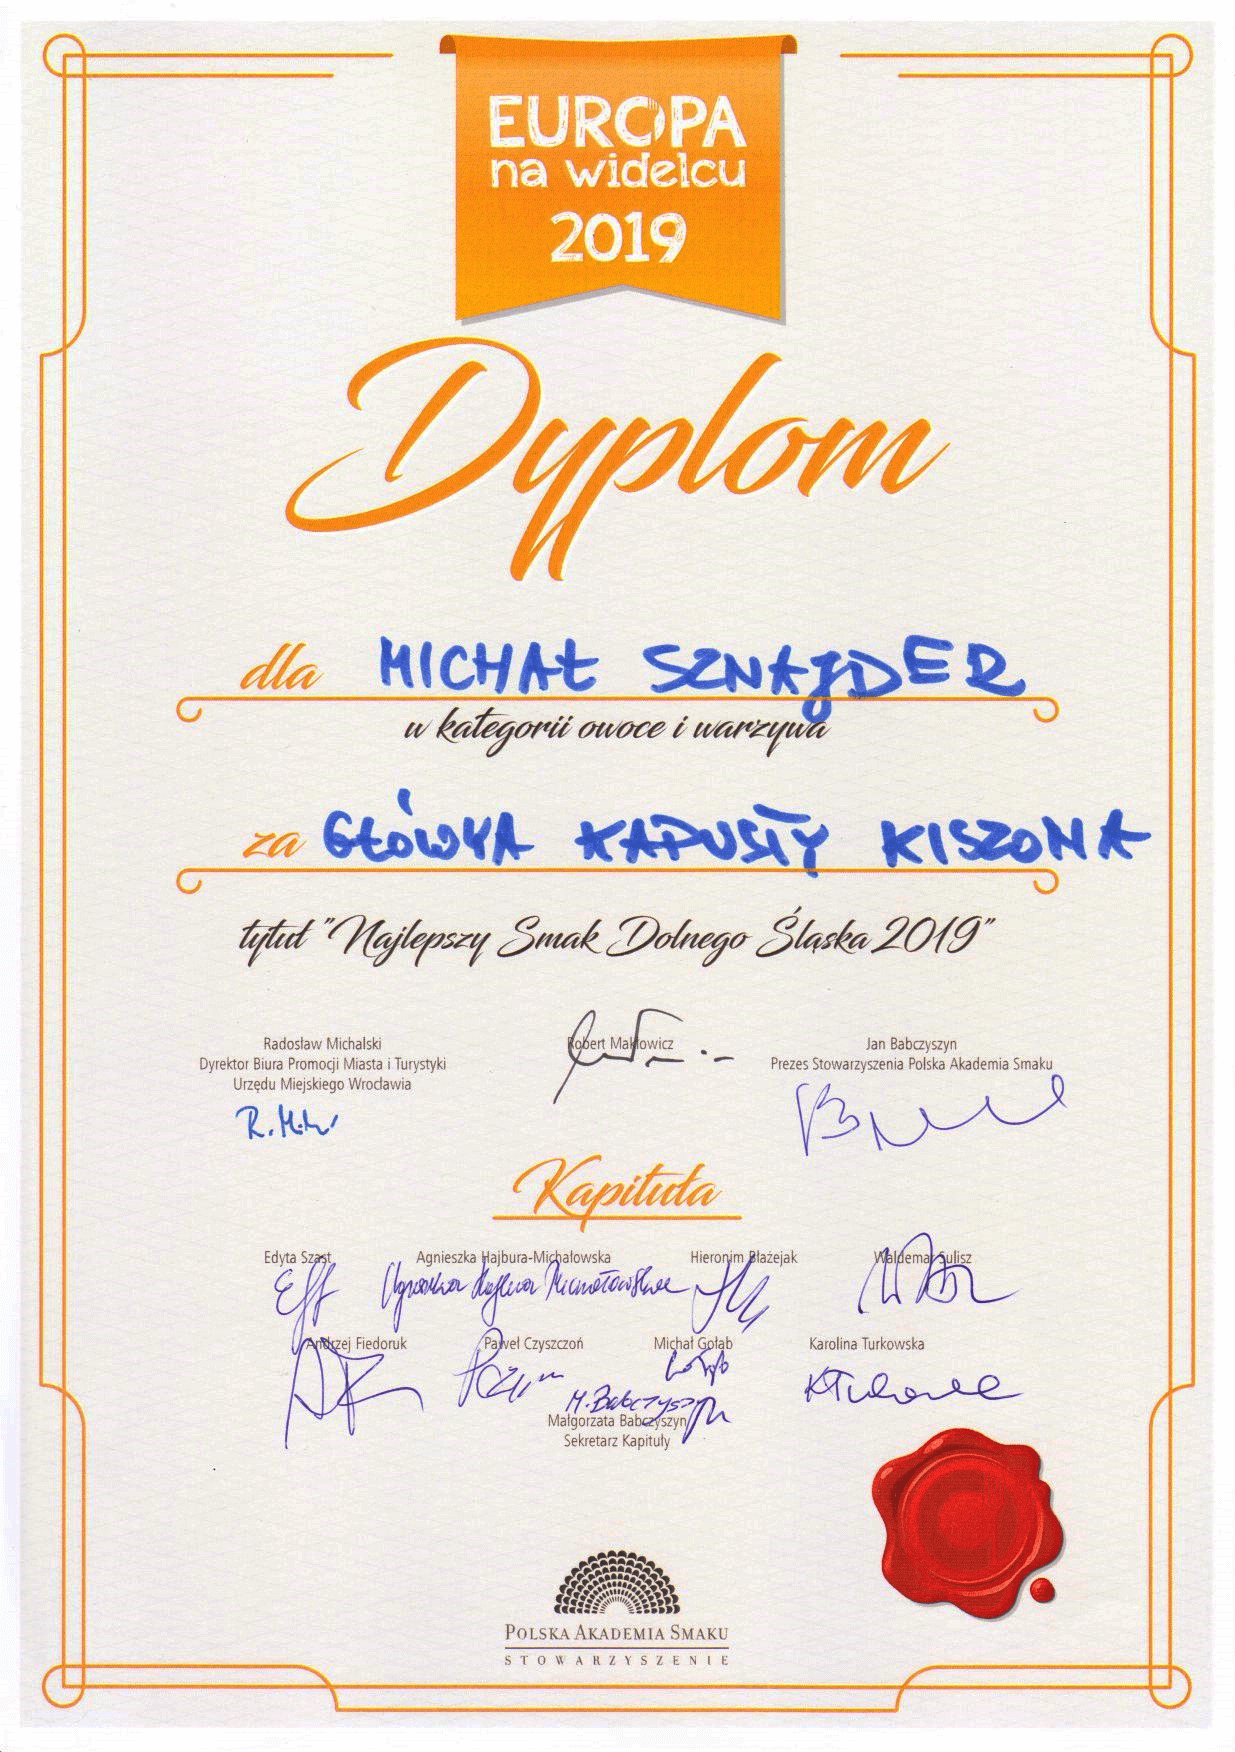 EUROPA
na widelcu
2019
Dyplom
dla MICHAŁ SZNAJDER
w kategorii owoce i warzywa
za GŁÓWKA KAPUSTY KISZONA
tytuł "Najlepszy Smak Dolnego Śląska 2019"
Radosław Michalski
Dyrektor Biura Promocji Miasta i Turystyki
Urzędu Miejskiego Wrocławia
Robert Makłowicz
Jan Babczyszyn
Prezes Stowarzyszenia Polska Akademia Smaku
Kapituła
Edyta Szast Agnieszka Hajbura-Michałowska Hieronim Błażejak Waldemar Sulisz
Agnieszka Hajbura Michałowska
Andrzej Fiedoruk Paweł Czyszczoń Michał Gołąb Karolina Turkowska
M. Babczyszyn
Małgorzata Babczyszyn
Sekretarz Kapituły
POLSKA AKADEMIA SMAKU
STOWARZYSZENIE